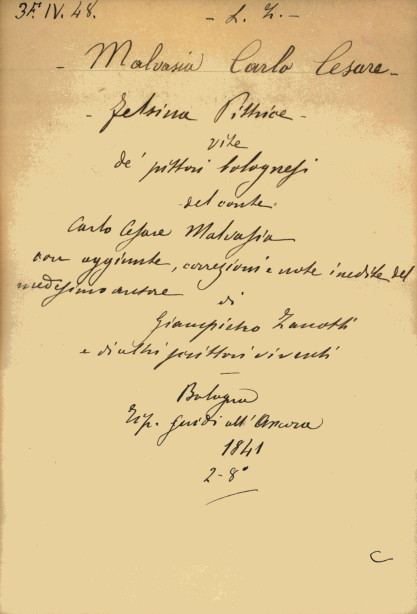 3F. IV. 48.
- L. Z. -
- Malvasia Carlo Cesare -
- Felsina Pittrice -
vite
de' pittori bolognesi
del conte
Carlo Cesare Malvasia
con aggiunte, correzioni e note inedite del
medesimo autore
di
Giampietro Zanotti
e di altri scrittori viventi
—
Bologna
Tip. Guidi all'Ancora
1841
2-8°
C